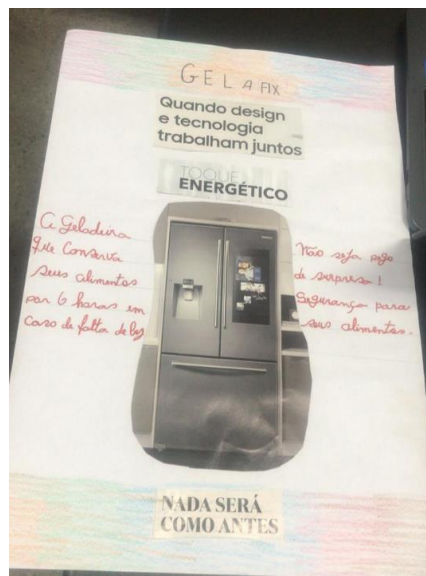 GELAFIX
Quando design
e tecnologia
trabalham juntos
TOQUE
ENERGÉTICO
A Geladeira
que Conserva
seus alimentos
por 6 horas em
Caso de falta de luz
Não seja pego
de surpresa!
Segurança para
seus alimentos.
NADA SERÁ
COMO ANTES